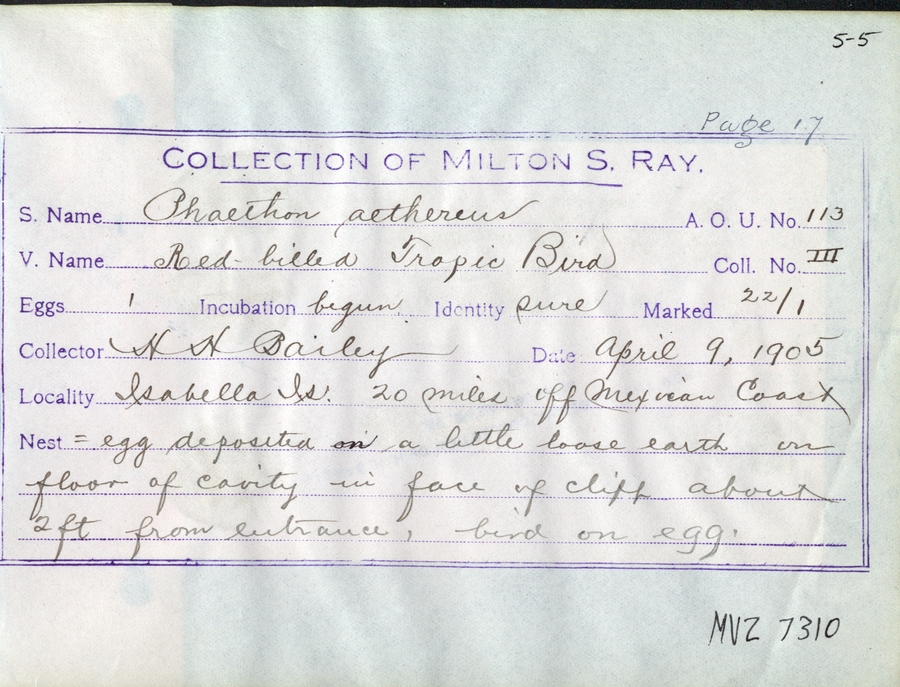 5-5
Page 17
COLLECTION OF MILTON S. RAY.
S. Name Phaethon aethereus A. O. U. No. 113
V. Name Red-billed Tropic Bird Coll. No. III
Eggs 1 Incubation begun. Identity sure Marked 22/1
Collector H H Bailey Date April 9, 1905
Locality Isabella Is. 20 miles off Mexican Coast
Nest = egg deposited on a little loose earth on
floor of cavity in face of cliff about
2 ft from entrance, bird on egg.
MVZ 7310